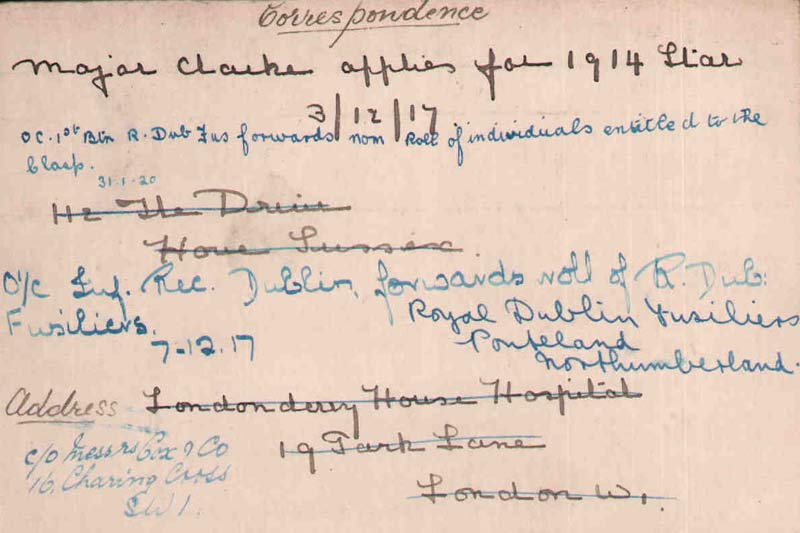 Correspondence
Major Clarke applies for 1914 Star
3/12/17
OC. 1st Btn R. Dub Fus forwards nom Roll of individuals entitled to the
Clasp.
31.1.20
42 The Drive
Hove Sussex.
O/c Inf. Rec. Dublin, forwards roll of R. Dub:
Fusiliers.
7-12.17
Royal Dublin Fusiliers
Ponteland
Northumberland.
Address Londonderry House Hospital
19 Park Lane
London W1.
c/o Messrs Cox & Co
16, Charing Cross
SW1.